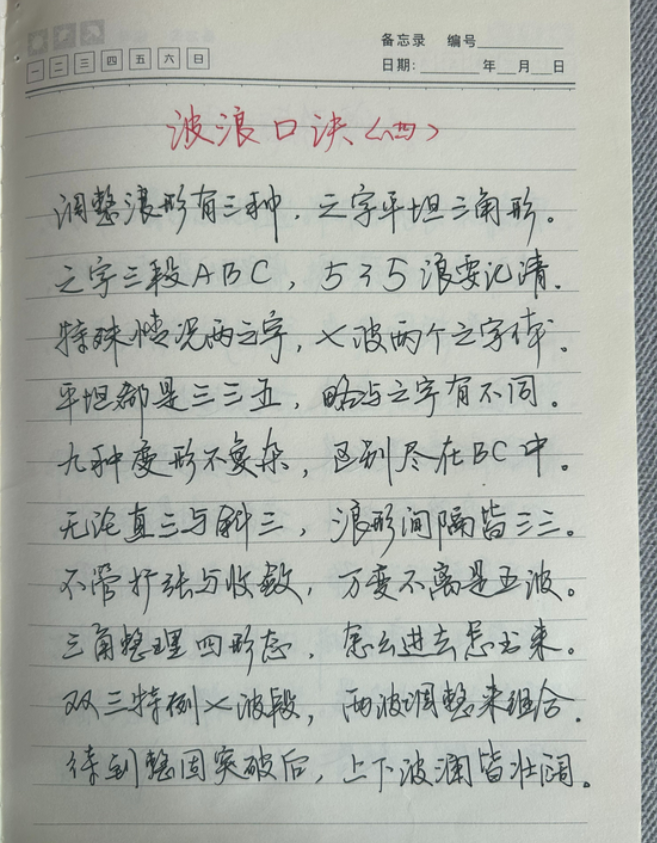 备忘录 编号
一 二 三 四 五 六 日
日期： 年 月 日
波浪口诀（四）
调整浪形有三种，之字平坦三角形。
之字三段ABC，535浪要记清.
特殊情况两之字，X波两个之字伴。
平坦都是三三五，略与之字有不同。
九种变形不复杂，区别尽在BC中。
无论直三与斜三，浪形间隔皆三三。
不管扩张与收敛，万变不离是五波。
三角整理四形态，怎么进去怎出来。
双三特例X波段，两波调整来组合.
待到整固突破后，上下波澜皆壮阔。